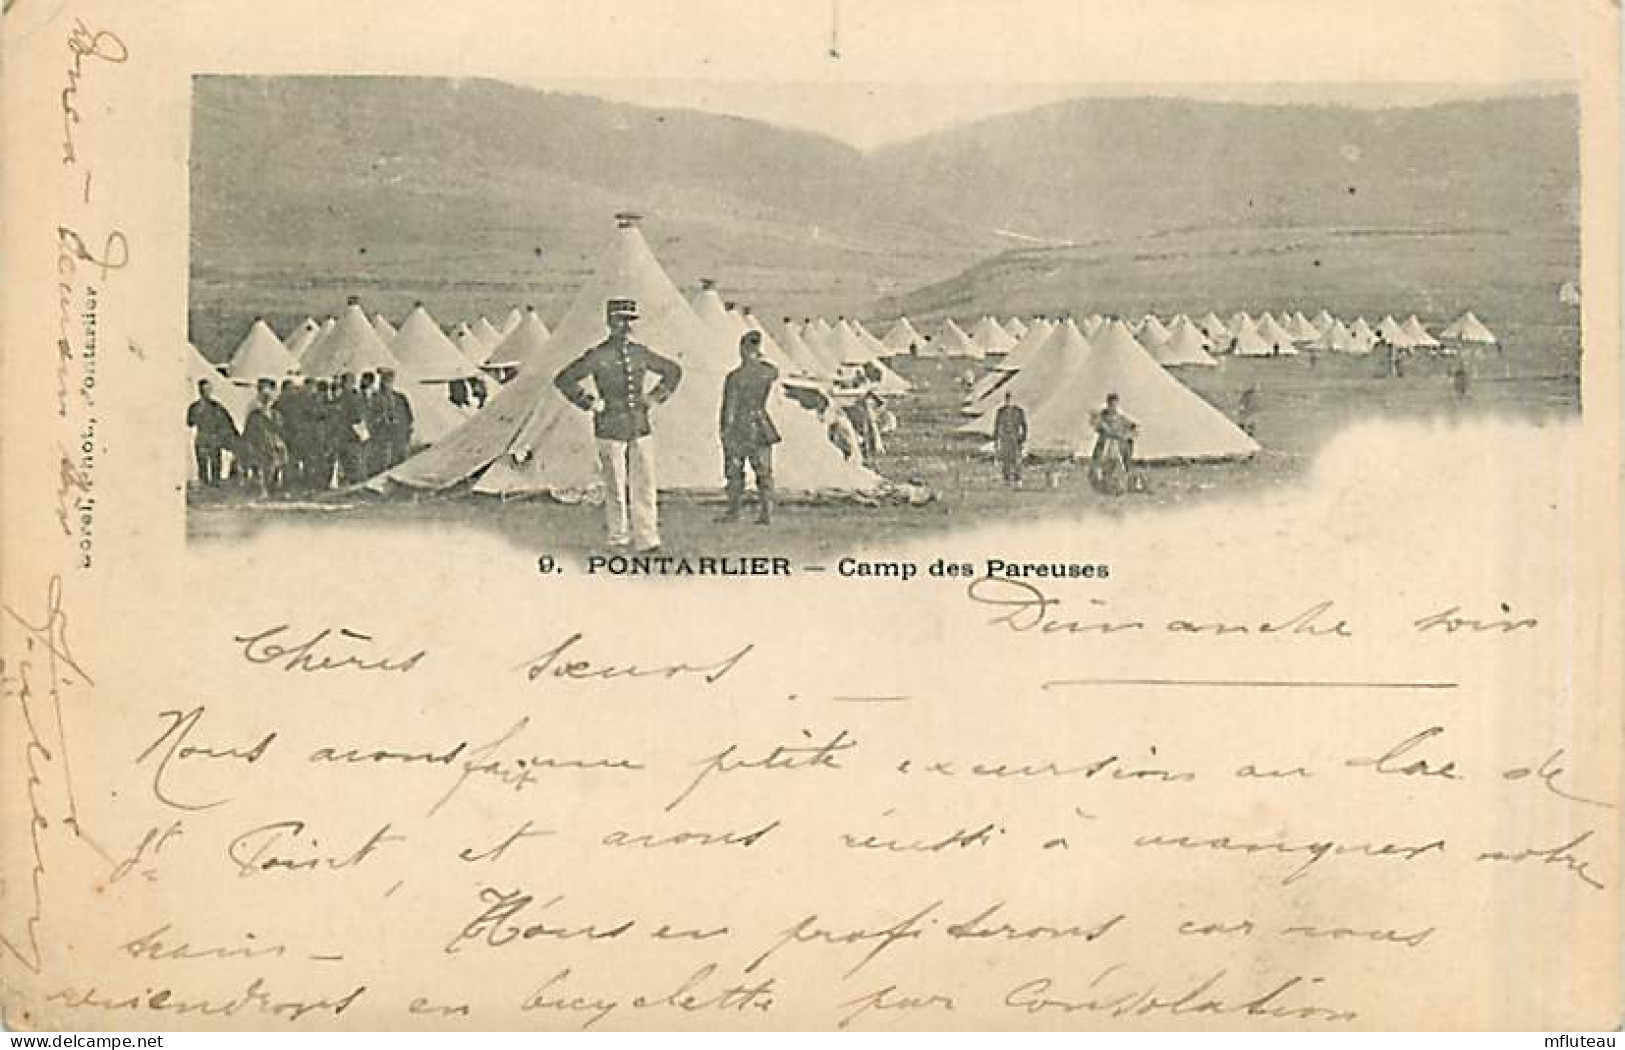 9. PONTARLIER — Camp des Pareuses
Dimanche soir
Chères sœurs. —
Nous avons fait une petite excursion au lac de
St Point, et avons réussi à manquer notre
train — Nous en profiterons car nous
reviendrons en bicyclette par Consolation
Borel, phot., Pontarlier
mfluteau